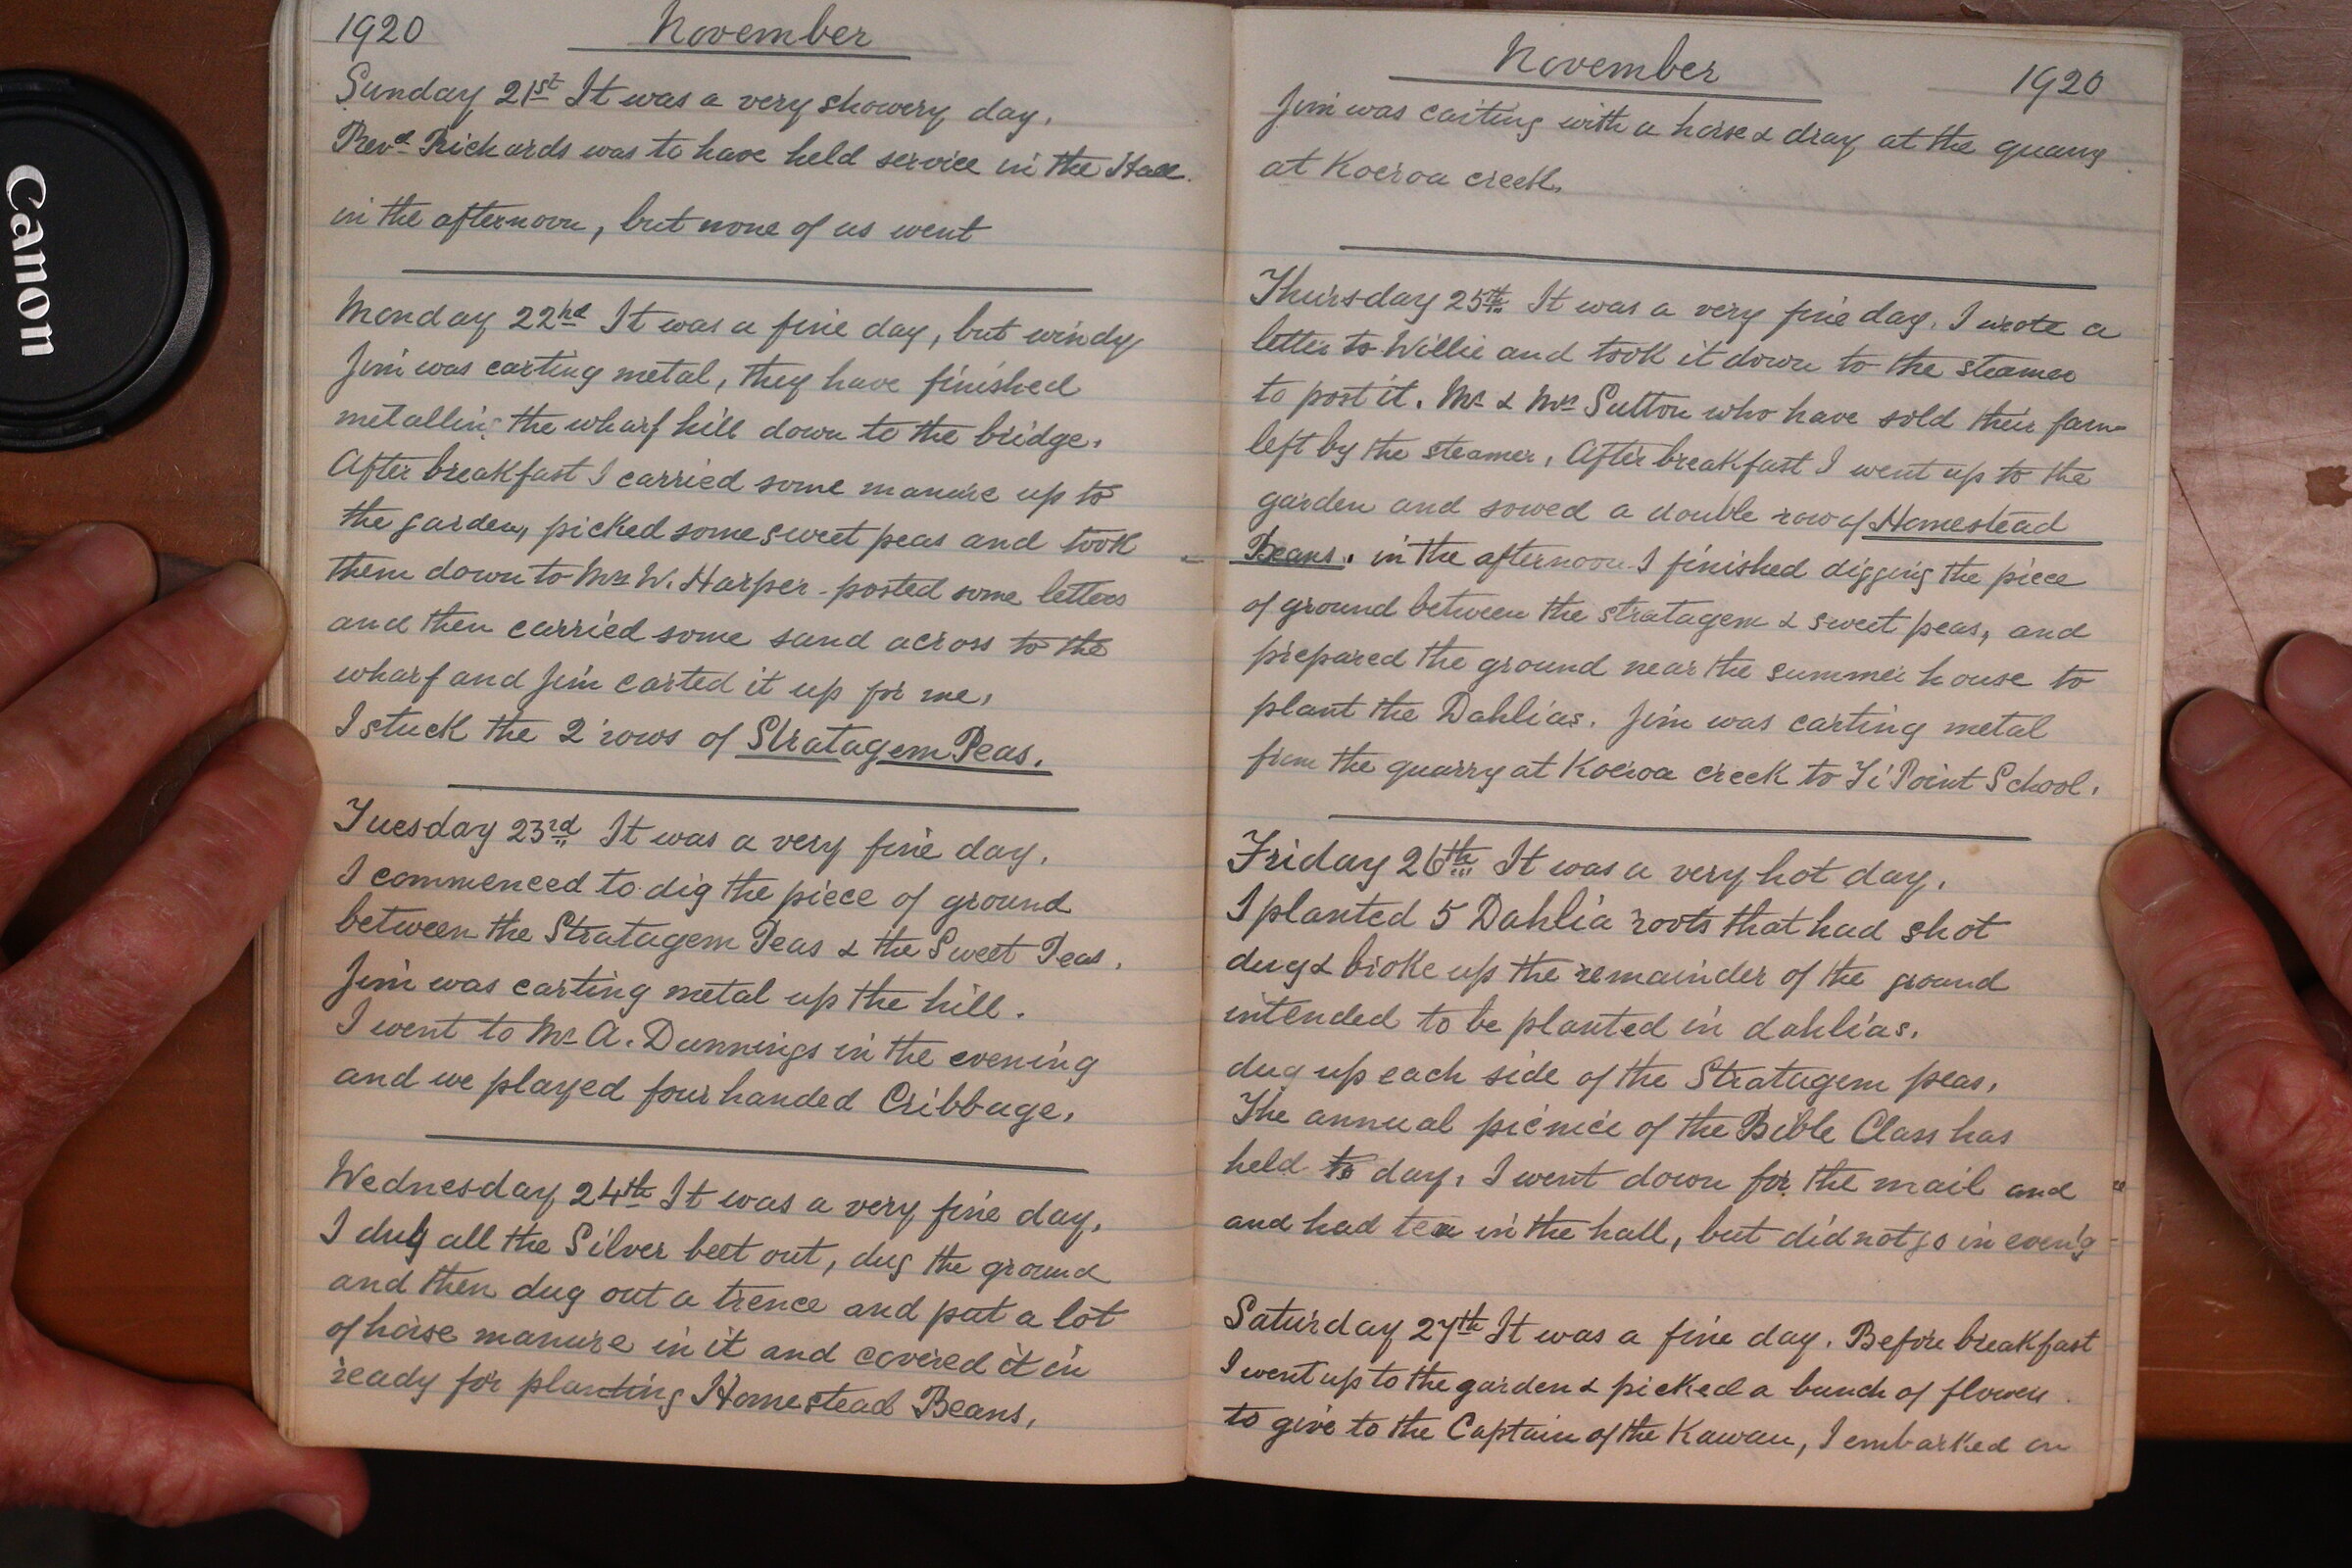 Canon
1920 November
Sunday 21st It was a very showery day.
Revd Rickards was to have held service in the Hall.
in the afternoon, but none of us went
Monday 22nd It was a fine day, but windy
Jim was carting metal, they have finished
metalling the wharf hill down to the bridge.
After breakfast I carried some manure up to
the garden, picked some sweet peas and took
them down to Mrs W. Harper - posted some letters
and then carried some sand across to the
wharf and Jim carted it up for me.
I stuck the 2 rows of Stratagem Peas.
Tuesday 23rd It was a very fine day.
I commenced to dig the piece of ground
between the Stratagem Peas & the Sweet Peas.
Jim was carting metal up the hill.
I went to Mr A. Dunnings in the evening
and we played four handed Cribbage.
Wednesday 24th It was a very fine day.
I dug all the Silver beet out, dug the ground
and then dug out a trence and put a lot
of horse manure in it and covered it in
ready for planting Homestead Beans.
November 1920
Jim was carting with a horse & dray at the quarry
at Koeroa creek.
Thursday 25th It was a very fine day. I wrote a
letter to Willie and took it down to the steamer
to post it. Mr & Mrs Sutton who have sold their farm
left by the steamer. After breakfast I went up to the
garden and sowed a double row of Homestead
Beans. in the afternoon I finished digging the piece
of ground between the stratagem & sweet peas, and
prepared the ground near the summer house to
plant the Dahlias. Jim was carting metal
from the quarry at Koeroa creek to Ti Point School.
Friday 26th It was a very hot day.
I planted 5 Dahlia roots that had shot
dug & broke up the remainder of the ground
intended to be planted in dahlias.
dug up each side of the Stratagem peas.
The annual picnic of the Bible Class has
held to day. I went down for the mail and
and had tea in the hall, but did not go in even'g
Saturday 27th It was a fine day. Before breakfast
I went up to the garden & picked a bunch of flowers
to give to the Captain of the Kawau, I embarked on